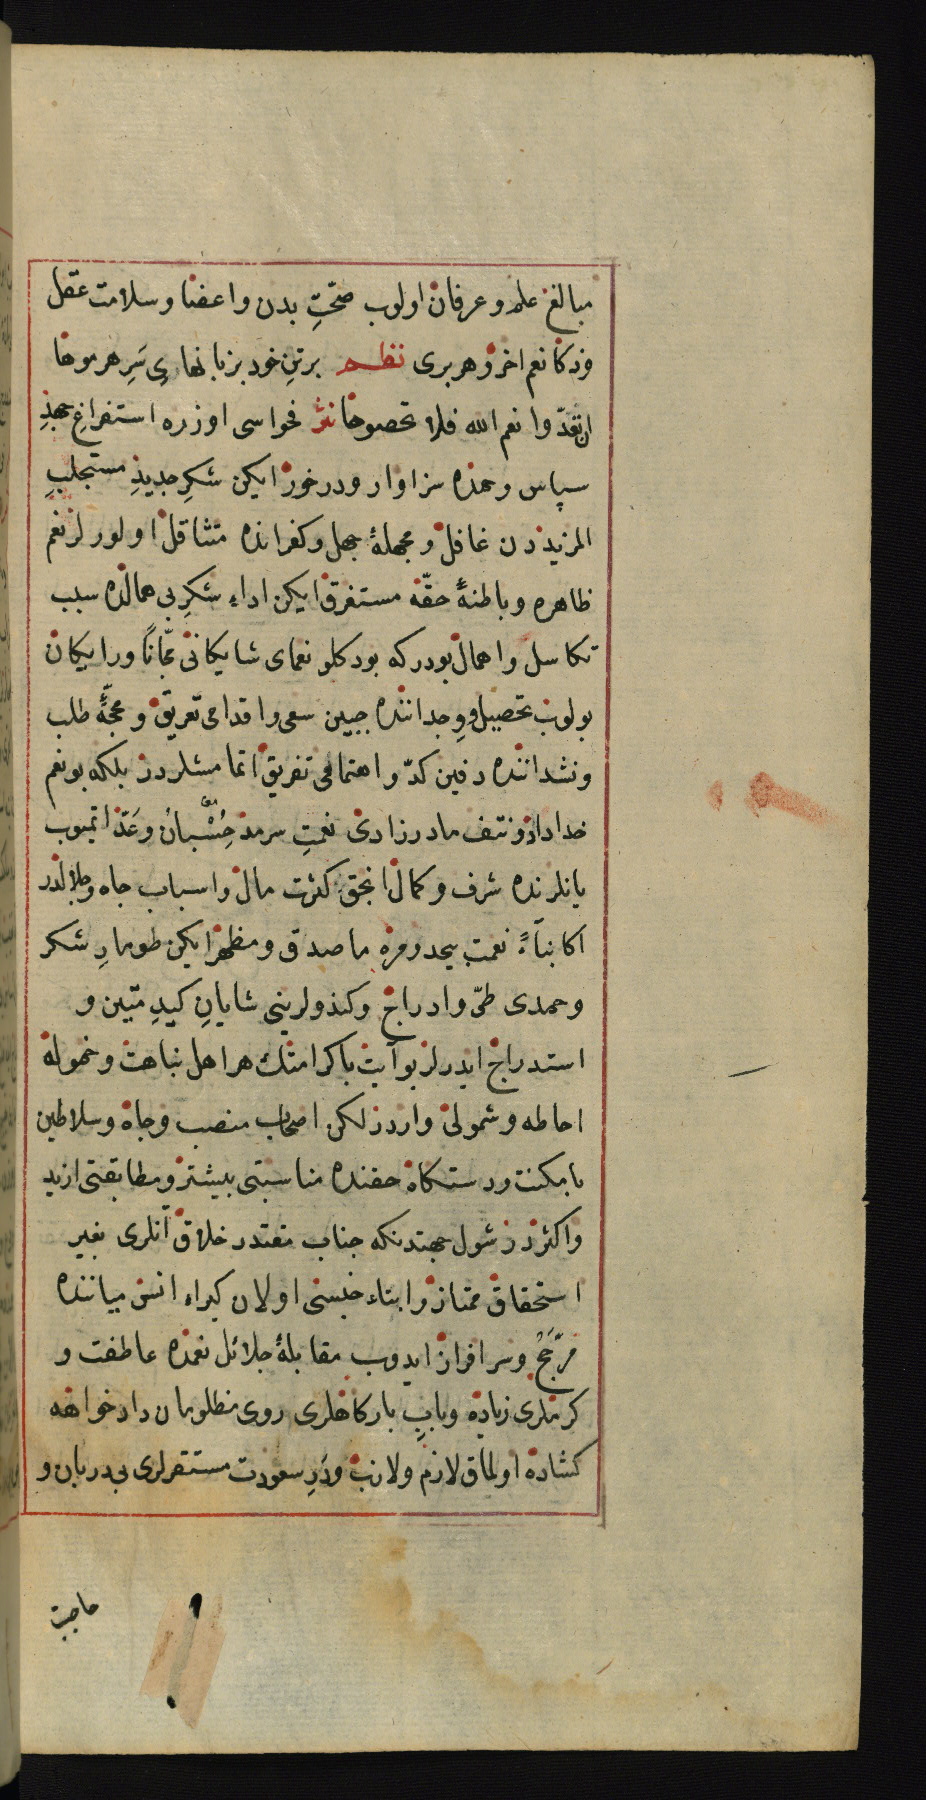 مبالغ علم و عرفان اولوب صحّتِ بدن و اعضا و سلامت عقل
وذكا نعم اخر وهر بری نظم برتنِ خود بزبانهایِ سَرِ هر موخا
ان تعدّوا نعم الله فلا تحصوها نثر فحواسی اوزره استفراغِ جهدِ
سپاس وحمده سزاوار ودرخور ایكن شكرِ جدیدِ مستجلبِ
المزیددن غافل و مجهلهٔ جهل وكفرانده متثاقل اولورلر نعم
ظاهره وباطنهٔ حقّه مستغرق ایكن اداء شكرِ بی همالده سبب
تكاسل واهمال بودركه بودكلو نعمای شایكانی مجّاناً ورایكان
بولوب تحصیل ووِجداننده جبین سعی واقدامی تعریق و محجّهٔ طلب
ونشداننده دفین كدّ واهتمامی تفریق اتمامشلردر بلكه بو نعم
خداداد ونتف مادرزادی نعمتِ سرمد حُسْبان وعَدّ اتمیوب
یانلرنده شرف وكمال انجق كثرت مال واسباب جاه وجلالدر
اكا بنآءً نعمت بیحد ومرّه ماصدق ومظهر ایكن طومارِ شكر
وحمدی طیّ وادراج وكندولرینی شایانِ كیدِ متین و
استدراج ایدرلر بو آیت باكرامتك هر اهل نباهت وخموله
احاطه وشمولی واردر لكن اصحاب منصب وجاه وسلاطین
بامكنت ودستكاه حقنده مناسبتی بیشتر ومطابقتی ازید
واكثردر شول جهتدنكه جناب مقتدر خلاق آنلری بغیر
استحقاق ممتاز وابناء جنسی اولان كبراء انس میاننده
مرَّجَح وسرافراز ایدوب مقابلهٔ جلائل نعمده عاطفت و
كرملری زیاده وبابِ باركاهلری روی مظلومان دادخواهه
كشاده اولمق لازم ولازب ودَرِ سعودت مستقرلری بی دربان و
حاجب